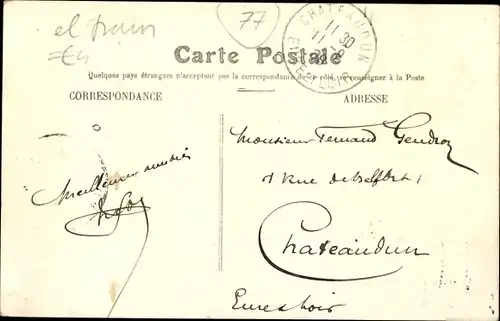 el train
77
€4
CHATEAUDUN
11 30
EURE-ET-LOIR
Carte Postale
Quelques pays étrangers n'acceptant pas la correspondance de ce côté, se renseigner à la Poste
CORRESPONDANCE
ADRESSE
Monsieur Fernand Gendron
1 Rue de Belfort
Chateaudun
Eure et Loir
Meilleures amitiés